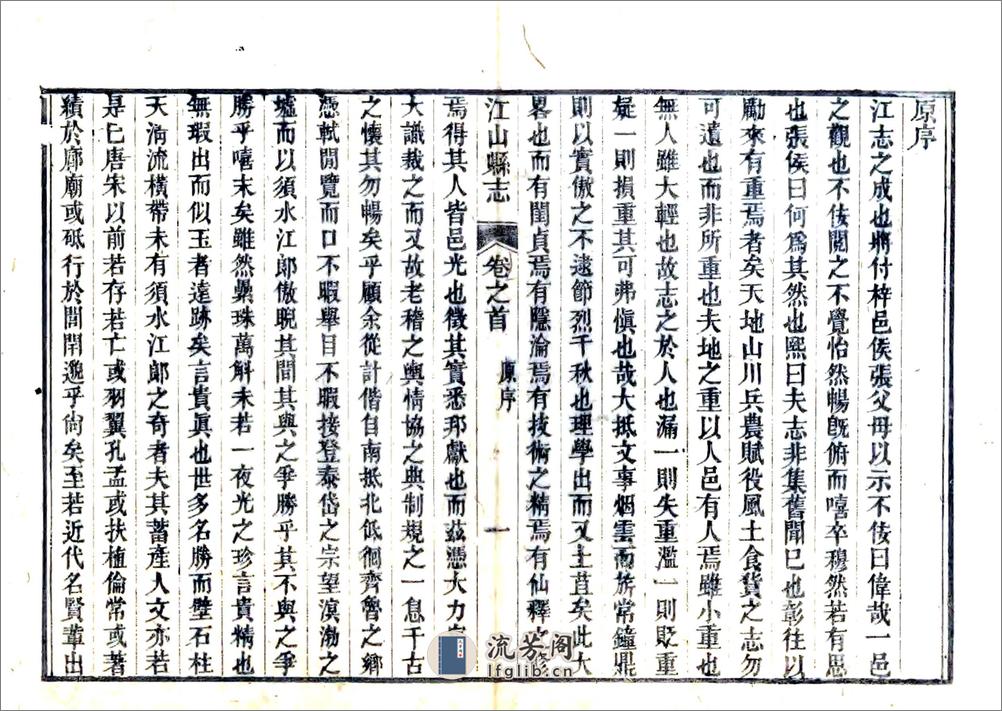 原序
江志之成也將付梓邑侯張父母以示不佞曰偉哉一邑
之觀也不佞閱之不覺怡然暢旣俯而嘻卒穆然若有思
也張侯曰何爲其然也熙曰夫志非集舊聞已也彰往以
勵來有重焉者矣天地山川兵農賦役風土食貨之志勿
可遺也而非所重也夫地之重以人邑有人焉雖小重也
無人雖大輕也故志之於人也漏一則失重濫一則貶重
疑一則損重其可弗愼也哉大抵文事烟雲而旂常鐘鼎
則以實倣之不逮節烈千秋也理學出而又土苴矣此大
畧也而有閨貞焉有隱淪焉有技術之精焉有仙釋之
江山縣志 卷之首 原序 一
焉得其人皆邑光也徵其實悉邦獻也而茲憑大力
大識裁之而又故老稽之輿情協之典制規之一息千古
之懷其勿暢矣乎顧余從計偕自南抵北低徊齊魯之鄉
憑軾閒覽而口不暇舉目不暇接登泰岱之宗望溟渤之
墟而以須水江郞傲睨其間其與之爭勝乎其不與之爭
勝乎嘻末矣雖然鼎珠萬斛未若一夜光之珍言貴精也
無瑕出而似玉者遠跡矣言貴眞也世多名勝而壁石柱
天淸流橫帶未有須水江郞之奇者夫其蓄產人文亦若
是已唐宋以前若存若亡或羽翼孔孟或扶植倫常或著
績於廊廟或砥行於閭閈邈乎尙矣至若近代名賢輩出
流芳阁
lfglib.cn